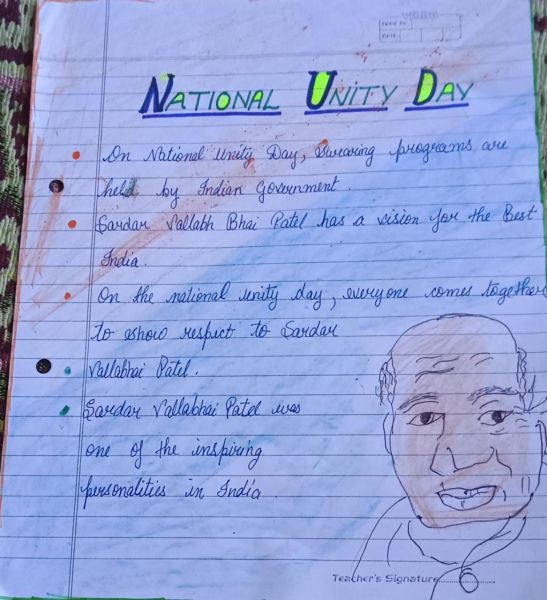 PAGE NO.
DATE
NATIONAL UNITY DAY
On National Unity Day, Swearing programs are
held by Indian Government.
Sardar Vallabh Bhai Patel has a vision for the Best
India.
On the national unity day, everyone comes together
to show respect to Sardar
Vallabhai Patel.
Sardar Vallabhai Patel was
one of the inspiring
personalities in India.
Teacher's Signature